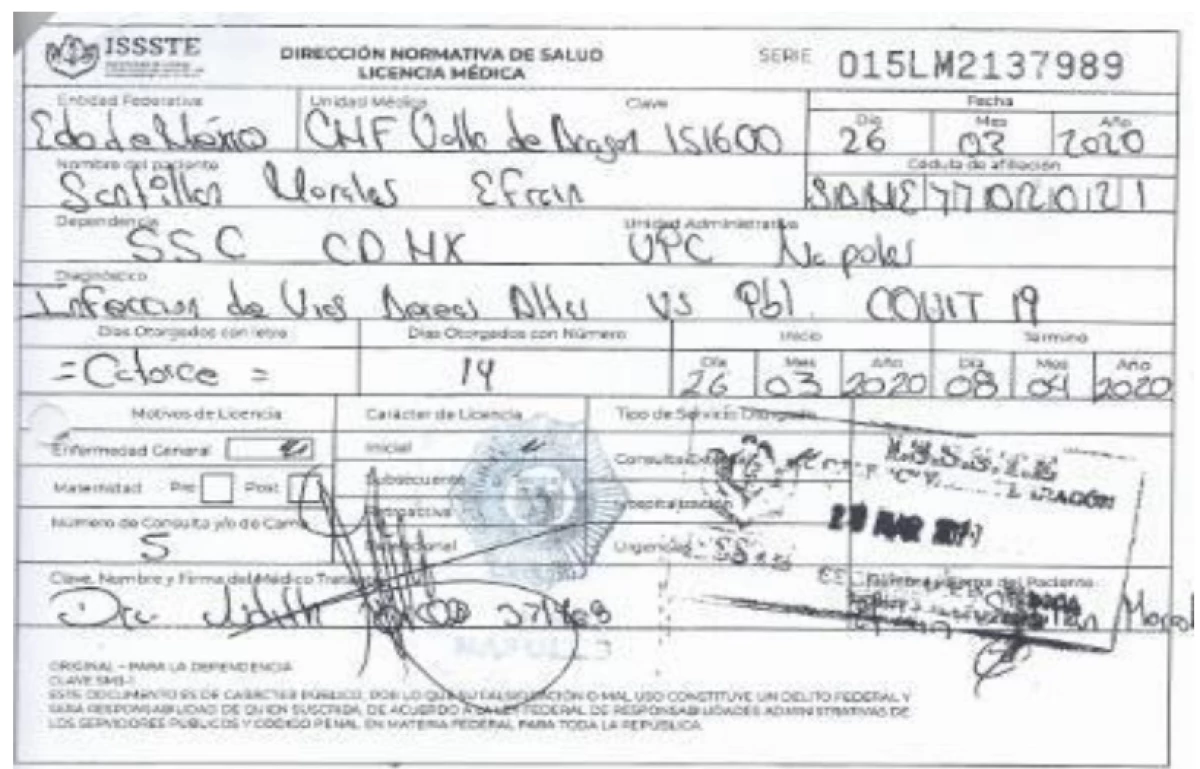 ISSSTE
DIRECCIÓN NORMATIVA DE SALUD
LICENCIA MÉDICA
SERIE 015LM2137989
Entidad Federativa Unidad Médica Clave Fecha
Edo de México CMF Valle de Aragon 151600
Día Mes Año
26 03 2020
Nombre del paciente Cédula de afiliación
Santillan Morales Efrain SAME 771021 0121
Dependencia Unidad Administrativa
SSC CDMX UPC Napoles
Diagnóstico
Infeccion de Vias Aereas Altas VS Pbl. COVIT 19
Dias Otorgados con letra Dias Otorgados con Número Inicio Termino
Día Mes Año Día Mes Año
= Catorce = 14 26 03 2020 08 04 2020
Motivos de Licencia Carácter de Licencia Tipo de Servicio Otorgado
Enfermedad General Inicial
Consulta Externa
Maternidad Pre Post Subsecuente
Retroactiva Hospitalización
Número de Consulta y/o de Cama
5
Urgencias
I.S.S.S.T.E
ARAGÓN
MAR
Clave, Nombre y Firma del Médico Tratante Nombre y Firma del Paciente
Dra Judith 371468
NAPOLES
ORIGINAL - PARA LA DEPENDENCIA
CLAVE SM3-1
ESTE DOCUMENTO ES DE CARÁCTER PÚBLICO, POR LO QUE SU FALSIFICACIÓN O MAL USO CONSTITUYE UN DELITO FEDERAL Y
SERA RESPONSABILIDAD DE QUIEN SUSCRIBA, DE ACUERDO A LA LEY FEDERAL DE RESPONSABILIDADES ADMINISTRATIVAS DE
LOS SERVIDORES PÚBLICOS Y CÓDIGO PENAL EN MATERIA FEDERAL PARA TODA LA REPÚBLICA.